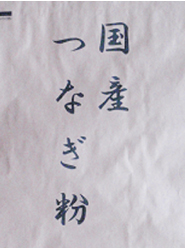 国産
つなぎ粉